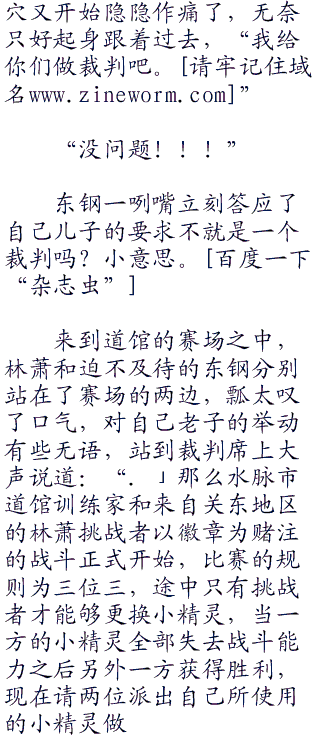 穴又开始隐隐作痛了，无奈
只好起身跟着过去，“我给
你们做裁判吧。[请牢记住域
名www.zineworm.com]”
“没问题！！！”
东钢一咧嘴立刻答应了
自己儿子的要求不就是一个
裁判吗？小意思。[百度一下
“杂志虫”]
来到道馆的赛场之中，
林萧和迫不及待的东钢分别
站在了赛场的两边，瓢太叹
了口气，对自己老子的举动
有些无语，站到裁判席上大
声说道：“．」那么水脉市
道馆训练家和来自关东地区
的林萧挑战者以徽章为赌注
的战斗正式开始，比赛的规
则为三位三，途中只有挑战
者才能够更换小精灵，当一
方的小精灵全部失去战斗能
力之后另外一方获得胜利，
现在请两位派出自己所使用
的小精灵做